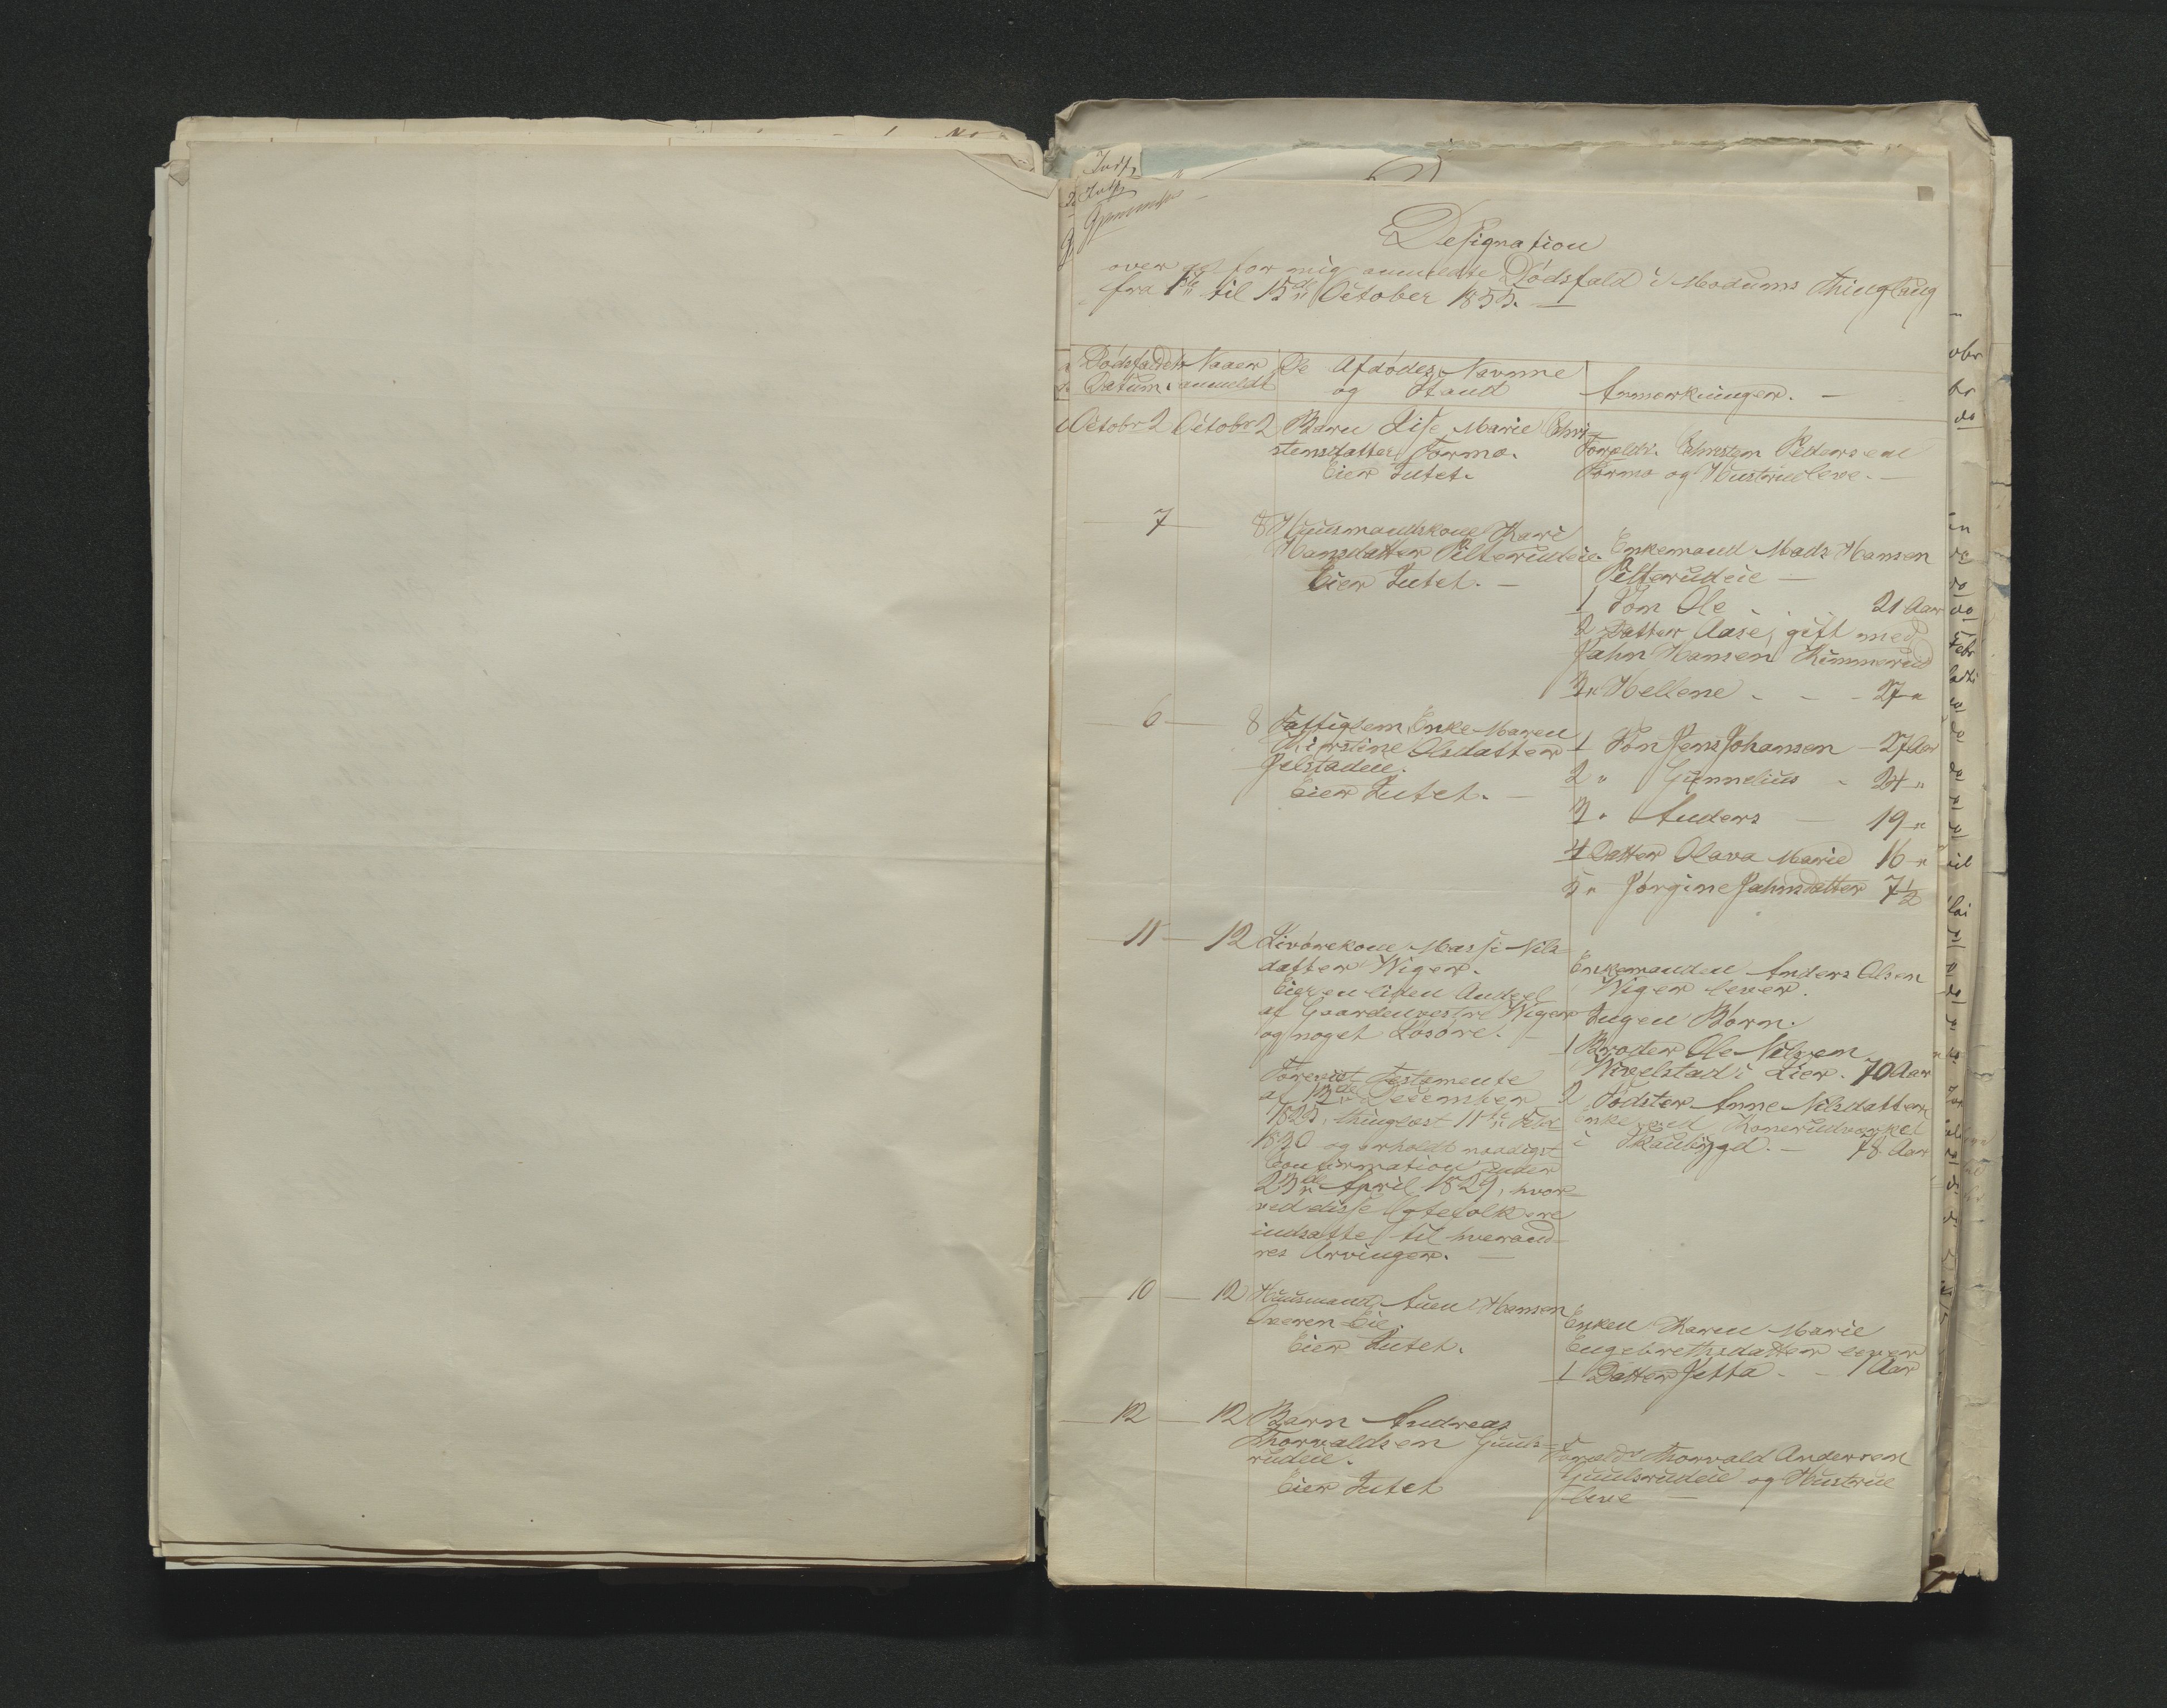 Designation
over de for mig anmeldte Dødsfald i Modums Thinglaug
fra 1ste til 15de October 1855. —
Dødsfaldets Datum. Naar anmeldt De Afdødes Navne og Stand Anmærkninger. —
Octobr 2 Octobr 2 Barn Lise Marie Chri-
stensdatter Formo.
Eier Intet.
Forældr. Christen Pedersen
Formo og Hustrue leve. —
7 — 8 Huusmandskone Kari
Hansdatter Pilterudeie.
Eier Intet. —
Enkemand Mads Hansen
Pilterudeie —
1 Søn Ole 21 Aar
2 Datter Aase, gift med
Jahn Hansen Kimmerud
3 " Hellene 27 "
6 — 8 Fattiglem Enke Maren
Kirstine Olsdatter
Jelstadeie.
Eier Intet. —
1 Søn Jens Johansen — 27 Aar
2 " Gunnelius 24 "
3 " Anders — 19 "
4 Datter Olava Marie 16 "
5 " Jørgine Jahnsdatter 7½
11 — 12 Livørekone Massi Nils-
datter Wiger.
Eier en liden Andeel
af Gaarden vestre Wiger
og noget Løsøre. —
Forevist Testamente
af 13de December
1825, thinglæst 11te Febr
1830 og erholdt naadigst
Confirmation under
23de April 1829, hvor-
ved disse Ægtefolk ere
indsatte til hverand-
res Arvinger. —
Enkemanden Anders Olsen
Wiger lever.
Ingen Børn.
1 Broder Ole Nilsen
Wivelstad i Lier. 70 Aar
2 Sødster Anne Nilsdatter
Enke ved Konerudværket
i Skoubygd. — 78 Aar
10 — 12 Huusmand Auen Hansen
Averen Eie.
Eier Intet.
Enken Karen Marie
Engebrethsdatter lever
1 Datter Jetta — 1 Aar
12 — 12 Barn Andreas
Thorvaldsen Guuls-
rudeie.
Eier Intet
Forældr Thorvald Andersen
Guulsrudeie og Hustrue
leve —